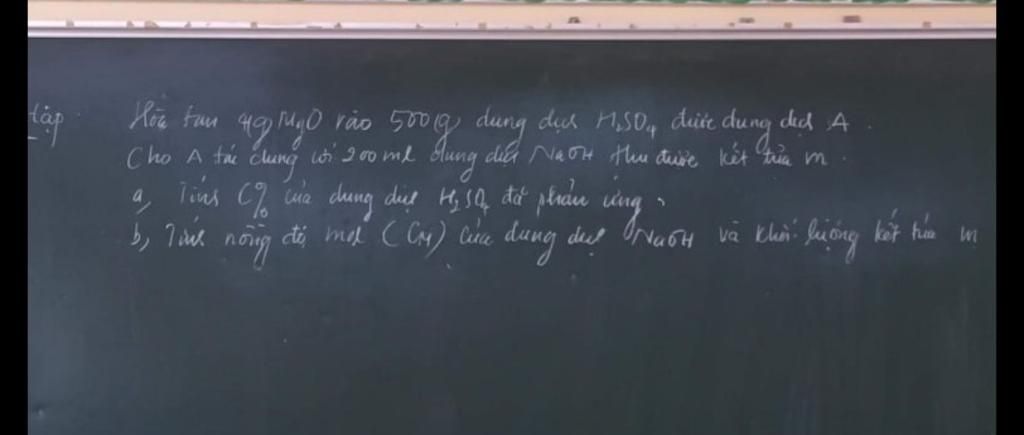 tập Hòa tan 4g MgO vào 500g dung dịch H₂SO₄ được dung dịch A.
Cho A tác dụng với 200 ml dung dịch NaOH thu được kết tủa m.
a, Tính C% của dung dịch H₂SO₄ đã phản ứng.
b, Tính nồng độ mol (CM) của dung dịch NaOH và khối lượng kết tủa m